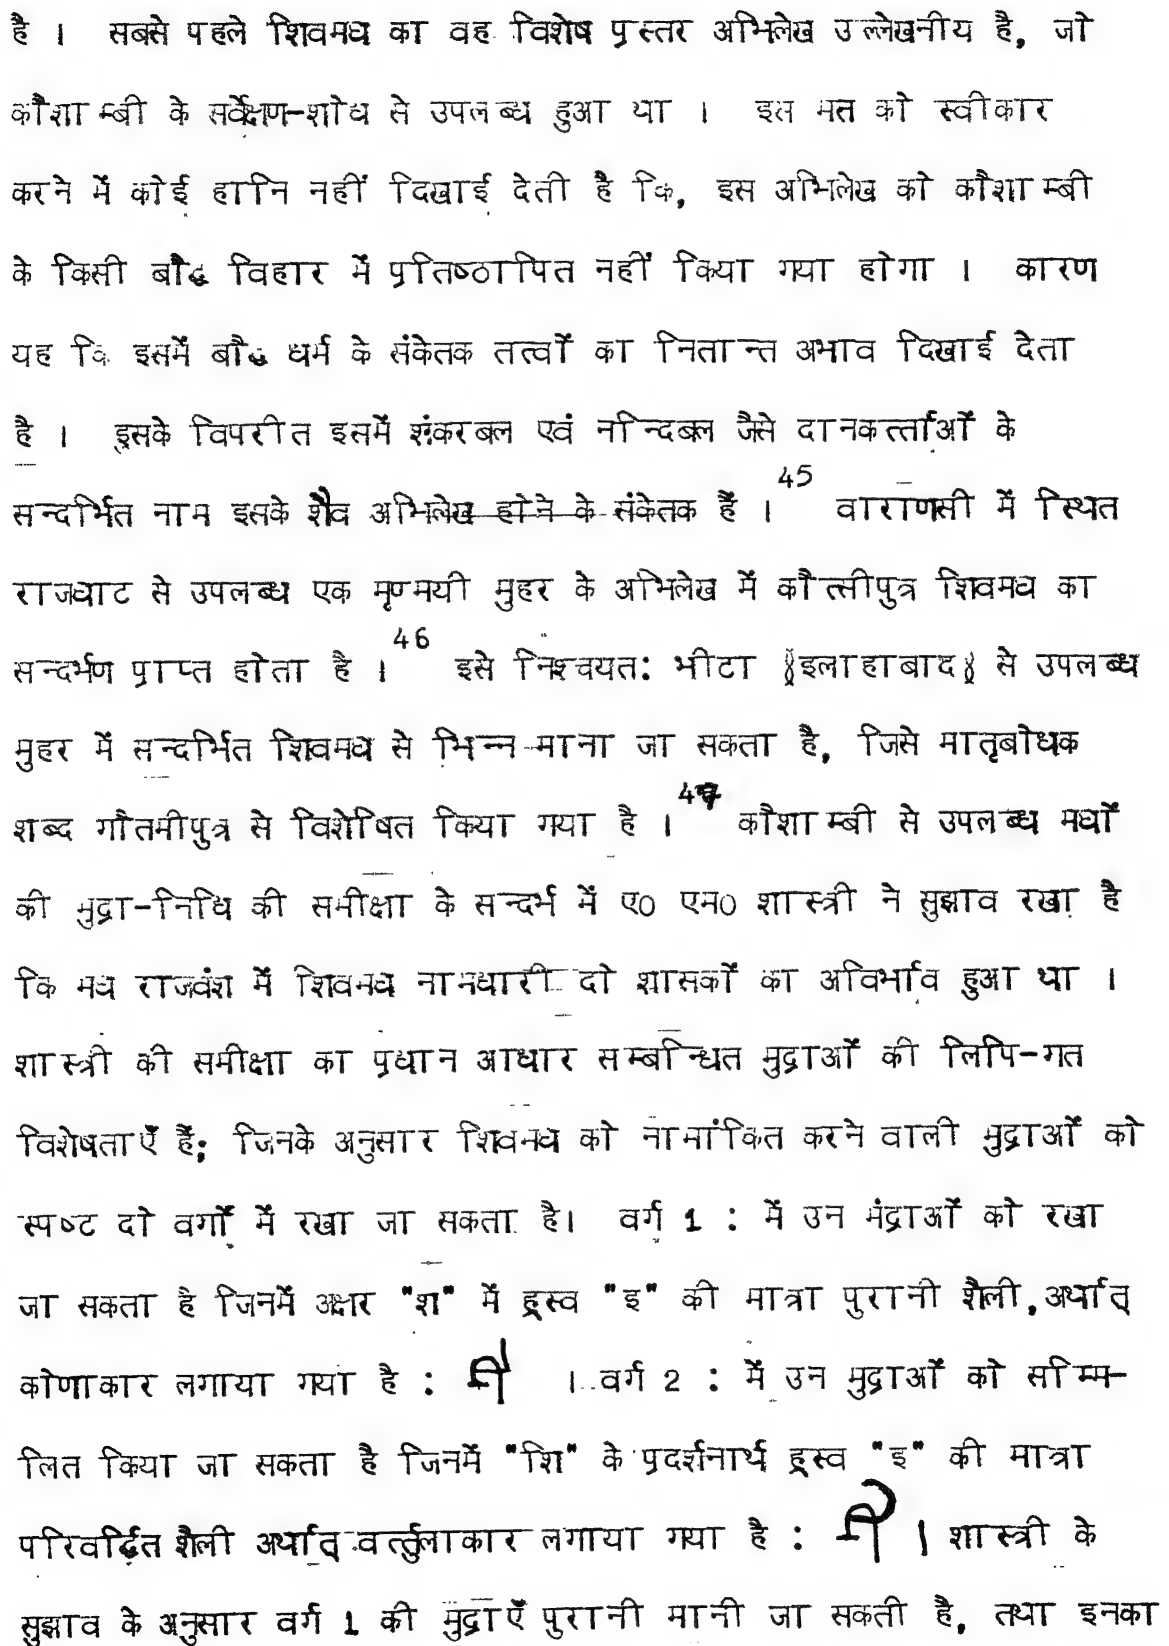 है । सबसे पहले शिवमघ का वह विशेष प्रस्तर अभिलेख उल्लेखनीय है, जो
कौशाम्बी के सर्वेक्षण-शोध से उपलब्ध हुआ था । इस मत को स्वीकार
करने में कोई हानि नहीं दिखाई देती है कि, इस अभिलेख को कौशाम्बी
के किसी बौद्ध विहार में प्रतिष्ठापित नहीं किया गया होगा । कारण
यह कि इसमें बौद्ध धर्म के संकेतक तत्वों का नितान्त अभाव दिखाई देता
है । इसके विपरीत इसमें शंकरबल एवं नन्दिबल जैसे दानकर्त्ताओं के
सन्दर्भित नाम इसके शैव अभिलेख होने के संकेतक हैं ।45 वाराणसी में स्थित
राजघाट से उपलब्ध एक मृण्मयी मुहर के अभिलेख में कौत्सीपुत्र शिवमघ का
सन्दर्भण प्राप्त होता है ।46 इसे निश्चयत: भीटा (इलाहाबाद) से उपलब्ध
मुहर में सन्दर्भित शिवमघ से भिन्न माना जा सकता है, जिसे मातृबोधक
शब्द गौतमीपुत्र से विशेषित किया गया है ।47 कौशाम्बी से उपलब्ध मघों
की मुद्रा-निधि की समीक्षा के सन्दर्भ में ए0 एम0 शास्त्री ने सुझाव रखा है
कि मघ राजवंश में शिवमघ नामधारी दो शासकों का अविर्भाव हुआ था ।
शास्त्री की समीक्षा का प्रधान आधार सम्बन्धित मुद्राओं की लिपि-गत
विशेषताएँ हैं; जिनके अनुसार शिवमघ को नामांकित करने वाली मुद्राओं को
स्पष्ट दो वर्गों में रखा जा सकता है। वर्ग 1 : में उन मंद्राओं को रखा
जा सकता है जिनमें अक्षर "श" में ह्रस्व "इ" की मात्रा पुरानी शैली, अर्थात्
कोणाकार लगाया गया है : । वर्ग 2 : में उन मुद्राओं को सम्मि-
लित किया जा सकता है जिनमें "शि" के प्रदर्शनार्थ ह्रस्व "इ" की मात्रा
परिवर्द्धित शैली अर्थात् वर्त्तुलाकार लगाया गया है : । शास्त्री के
सुझाव के अनुसार वर्ग 1 की मुद्राएँ पुरानी मानी जा सकती है, तथा इनका